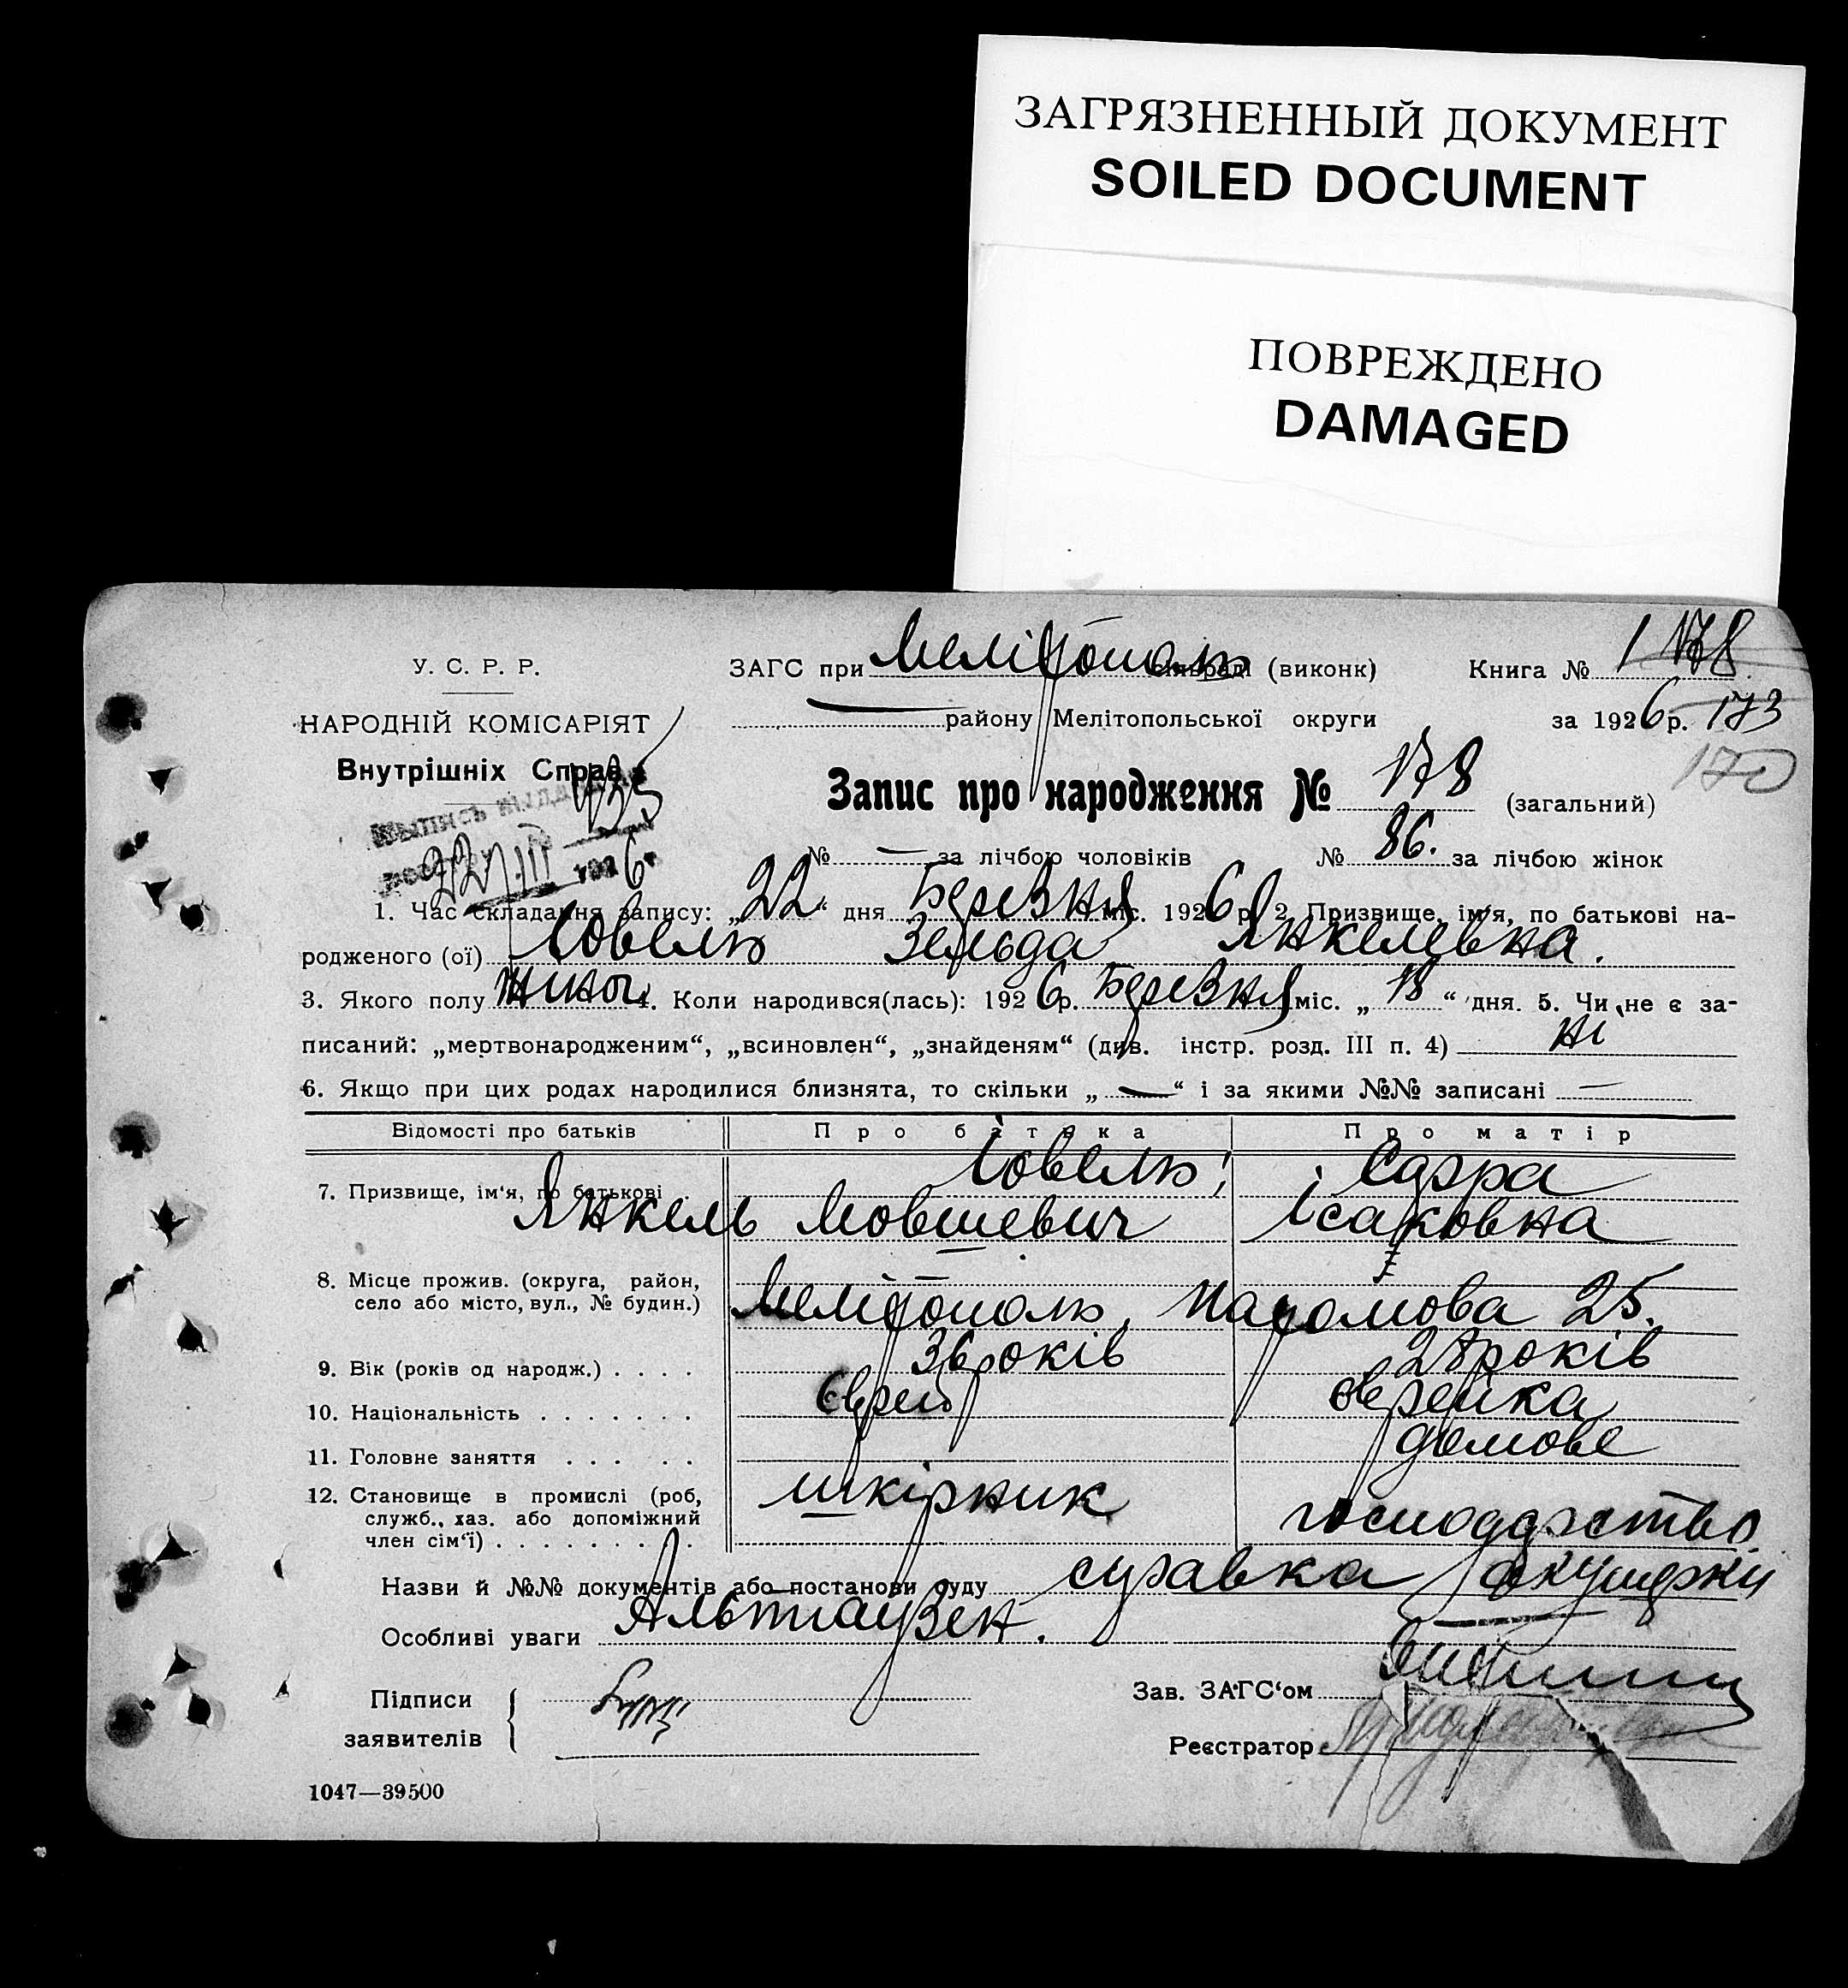 ЗАГРЯЗНЕННЫЙ ДОКУМЕНТ
SOILED DOCUMENT
ПОВРЕЖДЕНО
DAMAGED
У. С. Р. Р.
НАРОДНІЙ КОМІСАРІЯТ
Внутрішніх Справ
ЗАГС при Мелітополь сільраді (виконк) Книга № 1 178
району Мелітопольської округи за 1926 р. 173
170
Запис про народження № 178 (загальний)
№ — за лічбою чоловіків № 86. за лічбою жінок
22/III 1926.
1. Час складання запису: „22“ дня Березня міс. 1926 р. 2. Призвище, ім‘я, по батькові на-
родженого (ої) Іовель Зельда Янкелевна.
3. Якого полу 4. Коли народився(лась): 1926 р. Березня міс. „18“ дня. 5. Чи не є за-
писаний: „мертвонародженим“, „всиновлен“, „знайденям“ (див. інстр. розд. III п. 4) ні
6. Якщо при цих родах народилися близнята, то скільки „—“ і за якими №№ записані —
Відомості про батьків Про батька Про матір
7. Призвище, ім‘я, по батькові Іовель; Сарра
Янкель Мовшевич Ісаковна
8. Місце прожив. (округа, район,
село або місто, вул., № будин.) Мелітополь, 25.
9. Вік (років од народж.) . . . . 36 років 28 років
10. Національність . . . . . . . Єврей еврейка
11. Головне заняття . . . . . домове
12. Становище в промислі (роб, шкірник
служб., хаз. або допоміжний господарство
член сім‘ї) . . . . . . . . .
Назви й №№ документів або постанови суду справка акушерки
Особливі уваги Альтгаузен.
Підписи
заявителів
Зав. ЗАГС‘ом
Реєстратор
1047—39500